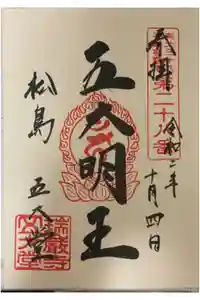 奉拝
令和二年
十月四日
五大明王
松島
五大堂
瑞巌寺
五大堂